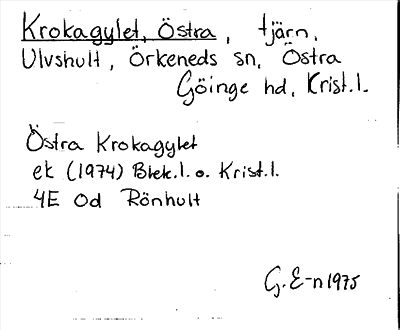 Krokagylet, Östra, tjärn,
Ulvshult, Örkeneds sn, Östra
Göinge hd, Krist.l.
Östra Krokagylet
ek (1974) Blek.l. o. Krist.l.
4E Od Rönhult
G. E-n 1975